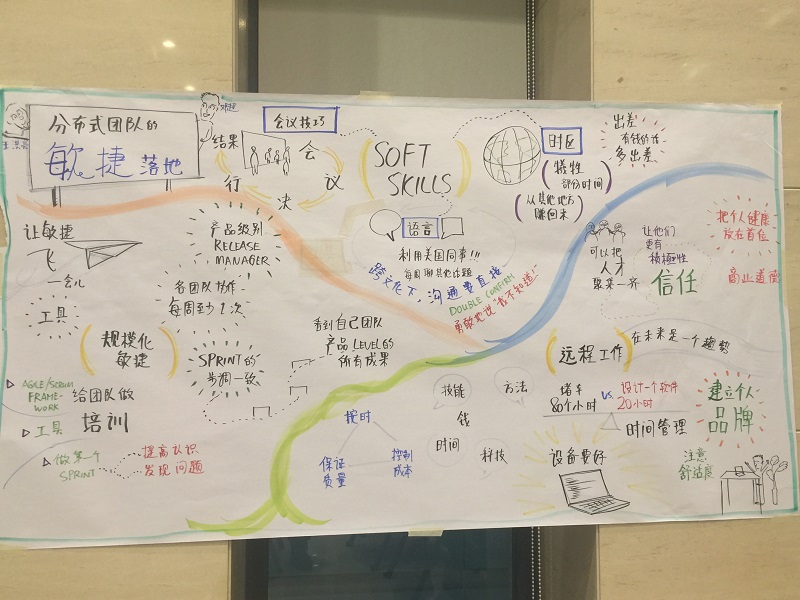 分布式团队的
敏捷落地
会议技巧
结果
会
议
决
行
SOFT
SKILLS
时区
(牺牲
部份时间)
(从其他地方
赚回来)
出差
有钱的话
多出差
语言
利用美国同事!!!
每周聊其他话题
跨文化下,沟通要直接
DOUBLE CONFIRM
勇敢地说"我不知道!"
让敏捷
飞
一会儿
工具
产品级别
RELEASE
MANAGER
各团队协作
每周至少1次
规模化
敏捷
SPRINT的
步调一致
看到自己团队
产品LEVEL的
所有成果
AGILE/SCRUM
FRAME-
WORK
给团队做
培训
工具
做某个
SPRINT
提高认识
发现问题
可以把
人才
聚来一齐
让他们
更有
积极性
信任
把个人健康
放在首位
商业道德
远程工作
在未来是一个趋势
堵车
80个小时
VS.
设计一个软件
20小时
时间管理
建立个人
品牌
设备要好
注意
舒适度
技能
方法
钱
时间
科技
按时
保证
质量
控制
成本